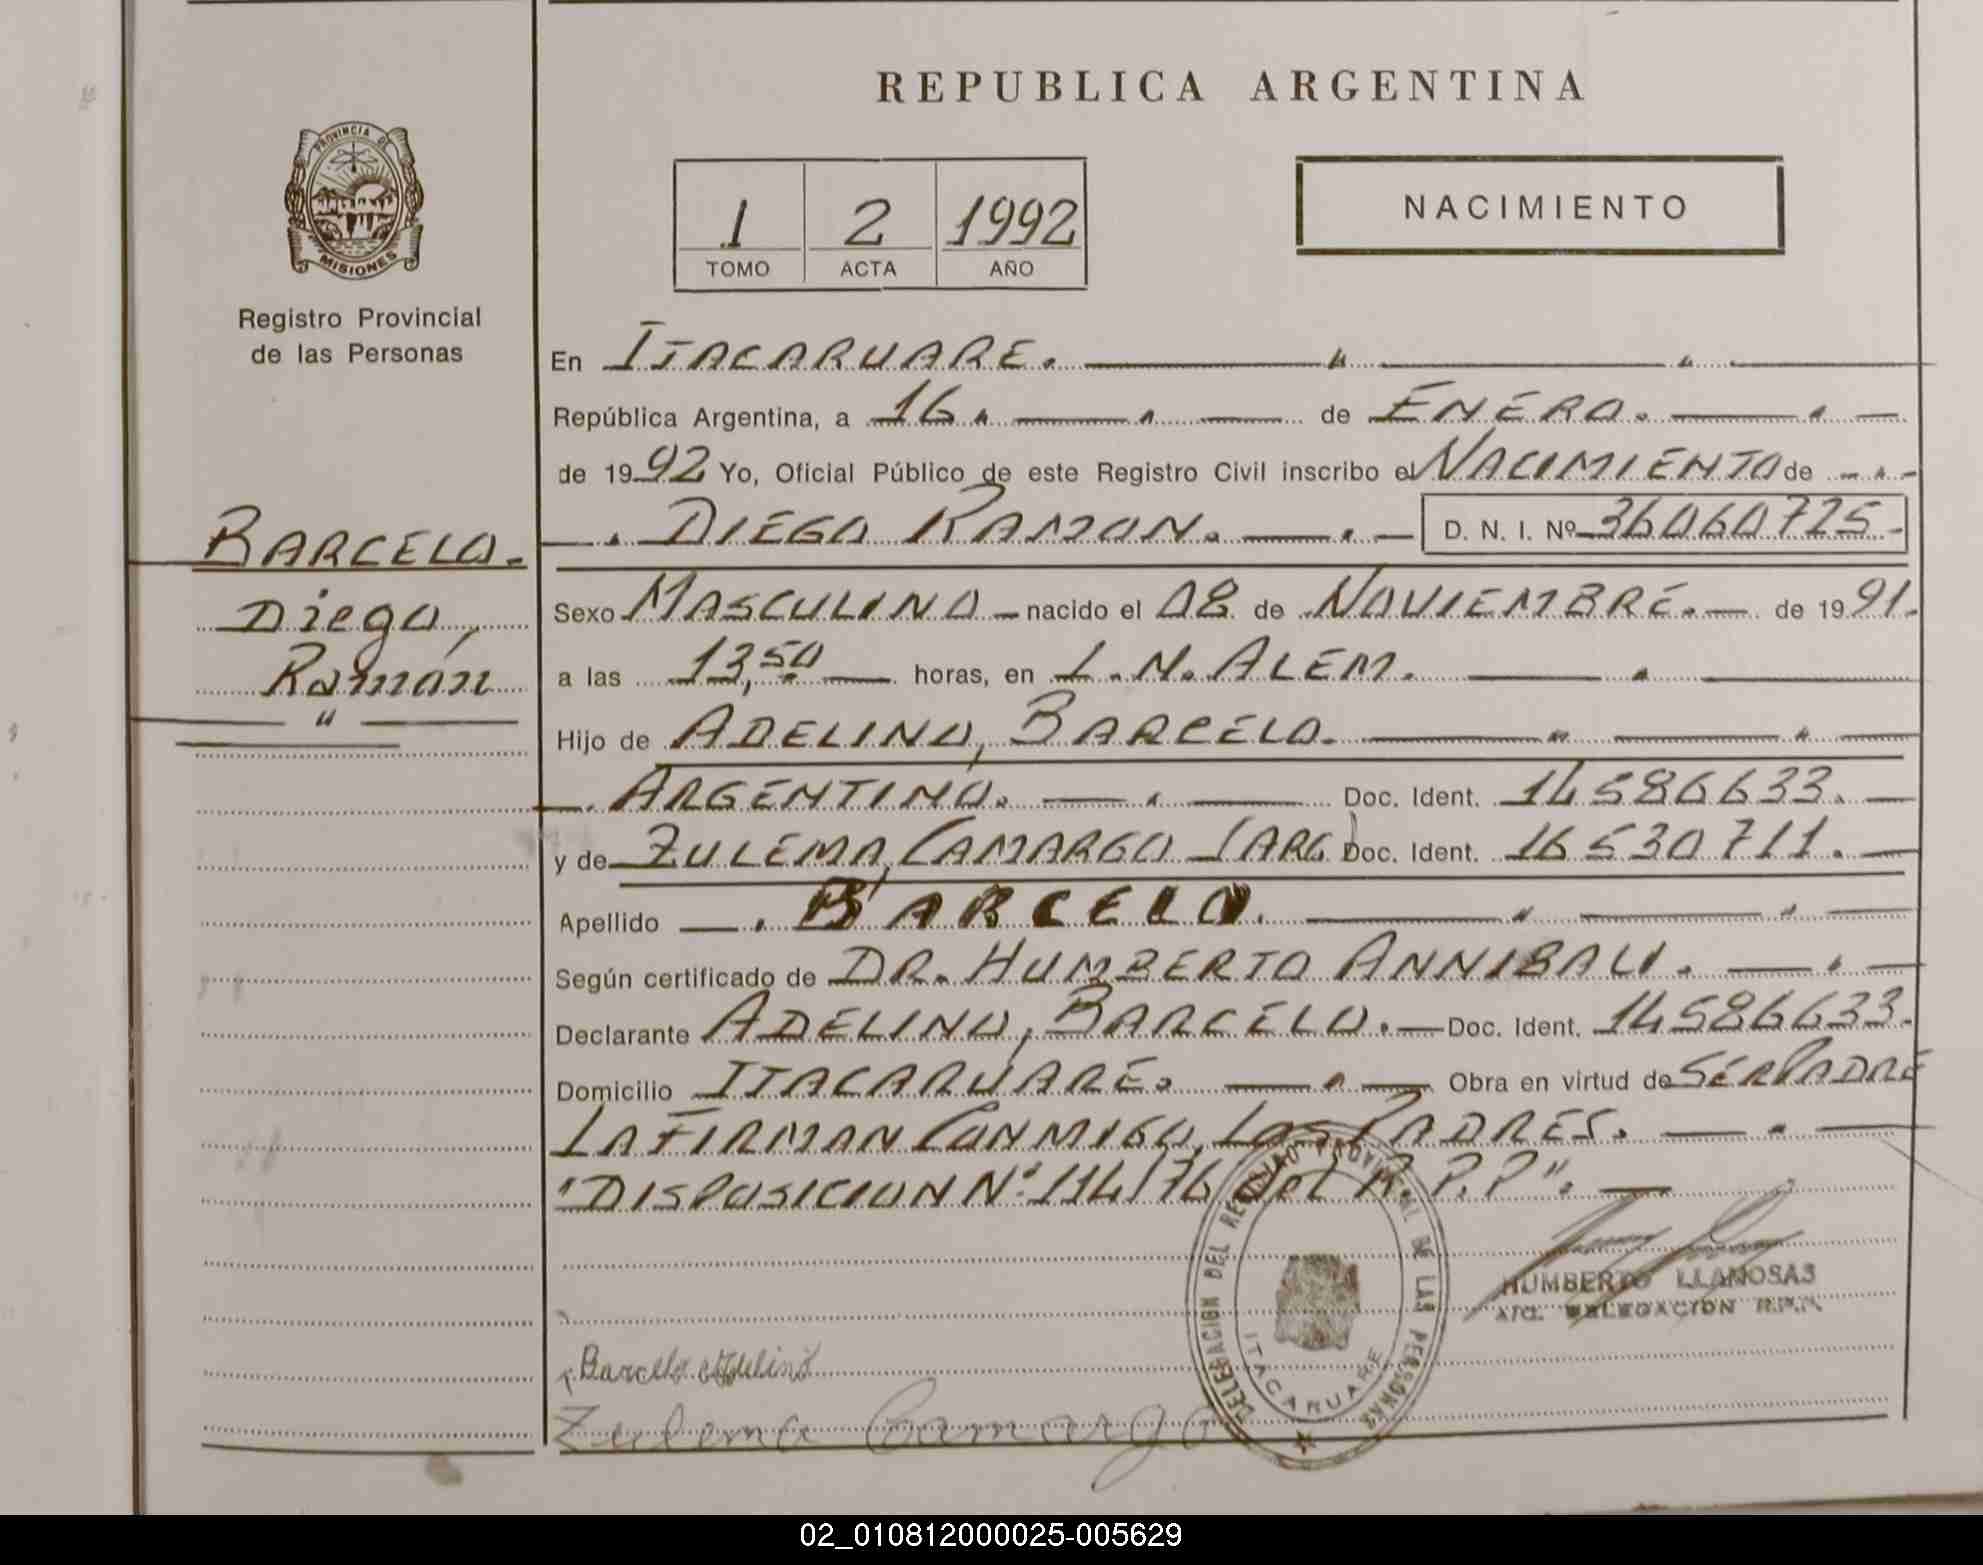 REPUBLICA ARGENTINA
PROVINCIA DE
MISIONES
Registro Provincial
de las Personas
1 2 1992
TOMO ACTA AÑO
NACIMIENTO
En ITACARUARE.
República Argentina, a 16. de ENERO.
de 1992 Yo, Oficial Público de este Registro Civil inscribo el NACIMIENTO de
DIEGO RAMON. D. N. I. Nº 36060725-
BARCELO.
Diego,
Ramón
Sexo MASCULINO nacido el 08 de NOVIEMBRE. de 1991.
a las 13,50 horas, en L.N. ALEM.
Hijo de ADELINO, BARCELO.
ARGENTINO. Doc. Ident. 14586633.
y de ZULEMA, CAMARGO (ARG) Doc. Ident. 16530711.
Apellido BARCELO.
Según certificado de DR. HUMBERTO ANNIBALI.
Declarante ADELINO, BARCELO. Doc. Ident. 14586633.
Domicilio ITACARUARE. Obra en virtud de SER PADRE
LA FIRMAN CONMIGO, LOS PADRES.
"DISPOSICION Nº 114/76 del R.P.P".
DELEGACION DEL REGISTRO PROVINCIAL DE LAS PERSONAS
ITACARUARE
HUMBERTO LLANOSAS
A/C. DELEGACION R.P.P.
Barcelo Adelino
Zulema Camargo
02_010812000025-005629